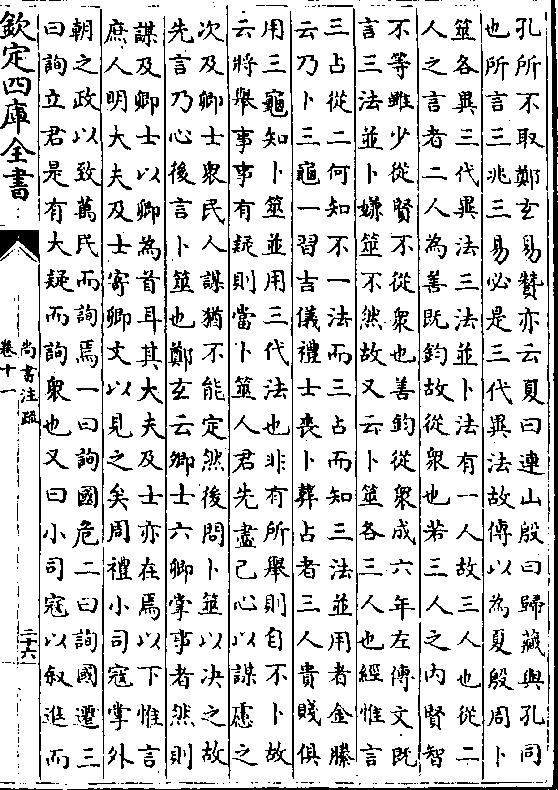 孔所不取鄭玄易贊亦云夏曰連山殷曰歸藏與孔同
也所言三兆三易必是三代異法故傳以為夏殷周卜
筮各異三代異法三法並卜法有一人故三人也從二
人之言者二人為善既鈞故從衆也若三人之内賢智
不等雖少從賢不從衆也善鈞從衆成六年左傳文既
言三法並卜嫌筮不然故又云卜筮各三人也經惟言
三占從二何知不一法而三占而知三法並用者金縢
云乃卜三龜一習吉儀禮士喪卜葬占者三人貴賤俱
用三龜知卜筮並用三代法也非有所舉則自不卜故
云將舉事事有疑則當卜筮人君先盡己心以謀慮之
次及卿士衆民人謀猶不能定然後問卜筮以决之故
先言乃心後言卜筮也鄭玄云卿士六卿掌事者然則
謀及卿士以卿為首耳其大夫及士亦在焉以下惟言
庶人明大夫及士寄卿文以見之矣周禮小司寇掌外
朝之政以致萬民而詢焉一曰詢國危二曰詢國遷三
曰詢立君是有大疑而詢衆也又曰小司寇以叙進而
欽定四庫全書
尚書注疏
卷十一
三十六